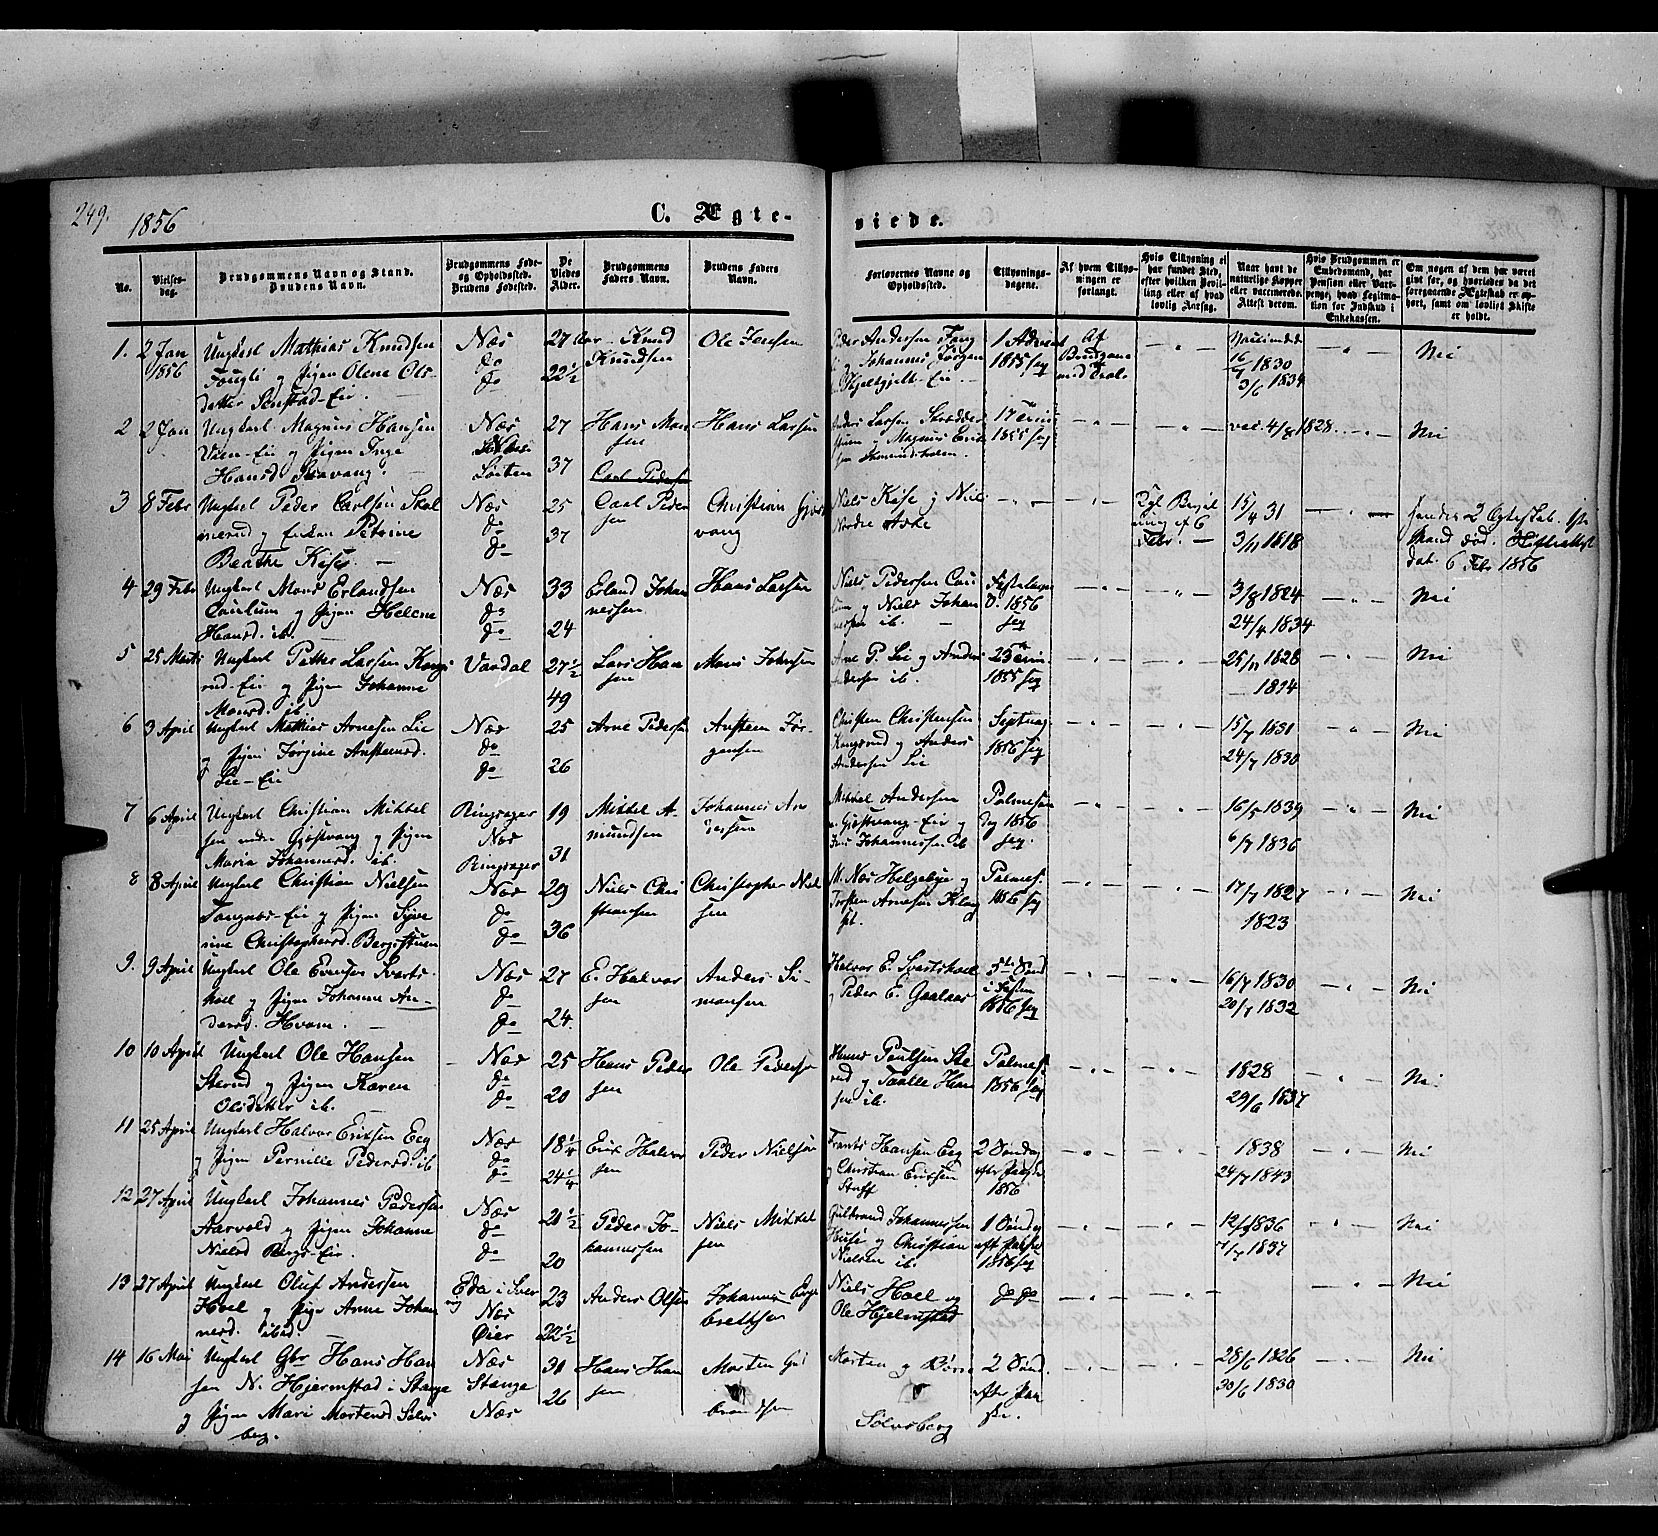 249.
1856
C. Ægte-
viede.
No.
Vielses-
dag.
Brudgommens Navn og Stand.
Brudens Navn.
Brudgommens Føde-
og Opholdssted.
Brudens Fødested.
De
Viedes
Alder.
Brudgommens
Faders Navn.
Brudens Faders
Navn.
Forlovernes Navne og
Opholdssted.
Tillysnings-
dagene.
Af hvem Tillys-
ningen er
forlangt.
Hvis Tillysning ei
har fundet Sted,
efter hvilken Bevil-
ling eller af hvad
lovlig Aarsag.
Naar havt de
naturlige Kopper
eller vaccinerede.
Attest derom.
Hvis Brudgommen er
Embedsmand, har
Pension eller Vart-
penge, hvad Legitima-
tion for Indskud i
Enkekassen.
Om nogen af dem har været
gift før, og hvorledes da det
foregaaende Ægteskab er op-
hørt, samt om lovligt Skifte
er holdt.
1. 2 Jan 1856
Ungkarl Mathias Knudsen
Fougli og Pigen Olene Ols-
datter Senstad-Eie.
Næs
do
do
27 Aar
22 1/2
Knud
Knudsen
Ole Jensen
Peder Andersen Foug
li og Johannes Jørgen
Hjelhjelt-Eie.
1 Advent
1855 seq
Af
Brudgom
med
Vaccinerede
16/7 1830
3/6 1834
Nei
2 2 Jan
Ungkarl Magnus Hansen
Vien-Eie og Pigen Inge
Hansd. Skavang.
Næs
Løiten
27
37
Hans Mon
sen
Hans Larsen
Anders Larsen
og Magnus Erik
sen
17 Trin
1855 seq
vac. 4/8 1828
Nei
3 8 Febr
Ungkarl Peder Carlsen Skol
merud og Enken Petrine
Beathe Kise.
Næs
do
do
25
37
Carl Pedersen
Carl Peder
sen
Christian Gjøs
vang
Niels Kise og Niels
Nordre Aske
Kgl Bevil
ning af 6
Febr.
15/4 31
3/11 1818
hendes 2 Ægteskab. 1ste
Mand død. Skifteattest
dat. 6 Febr 1856
4 29 Febr
Ungkarl Mons Erlandsen
Caulum og Pigen Helene
Hansd. ib.
Næs
do
do
33
24
Erland Johan
nessen
Hans Larsen
Niels Pedersen Cau
lum og Niels Johan
nessen ib.
Fastelavns
S. 1856
seq
3/8 1824
24/4 1834
Nei
5 25 Marts
Ungkarl Petter Larsen Kongs
rud-Eie og Pigen Johanne
Monsd. ib.
Vardal
27 1/2
49
Lars Han
sen
Mons Johnsen
Arne P. Lie og Anders
Andersen ib.
23 Trin.
1855 seq
25/11 1828
1814
Nei
6 3 April
Ungkarl Mathias Arnesen Lie
og Pigen Jørgine Anstensd.
Lie-Eie
Næs
do
do
25
26
Arne Pedersen
Ansteen Jør-
gensen
Christen Christensen
Kongsrud og Anders
Andersen Lie
Septuag
1856 seq
15/7 1831
24/7 1830
Nei
7 6 April
Ungkarl Christian Mikkel
sen under Gjøstvang og Pigen
Maria Johannesd. ib.
Ringsager
Næs
Ringsager
19
31
Mikkel A-
mundsen
Johannes An
dersen
Mikkel Andersen
u. Gjøstvang-Eie og
Johannessen ib
Palmesøn
dag 1856
seq.
16/5 1839
6/7 1836
Nei
8 8 April
Ungkarl Christian Nielsen
Tangnes-Eie og Pigen Syve
rine Christophersd. Bergsstuen
Næs
do
do
29
36
Niels Chri
stiansen
Christopher Niel
sen
M. Næs Helgebye og
Torsten Arnesen Klog
Palmes.
1856 seq
17/7 1827
1823
Nei
9. 9 April
Ungkarl Ole Evensen Svarts-
hoel og Pigen Johanne An-
dersd. Hvam.
Næs
do
do
27
24
E. Halvor
sen
Anders Si-
monsen
Halvor E. Svartshoel
og Peder E. Gaalaas
5te Sønd
i Fasten
1856 seq
16/7 1830
20/7 1832
Nei
10 10 April
Ungkarl Ole Hansen
Sterud og Pigen Karen
Olsdatter ib.
Næs
do
do
25
20
Hans Peder
sen
Ole Pedersen
Hans Poulsen Ste
rud og Taalle Han
sen ib.
Palmes.
1856 seq
1828
29/6 1837
Nei.
11 25 April
Ungkarl Halvor Eriksen Eeg
og Pigen Pernille Pedersd. ib
Næs
do
do
18 1/4
24 1/4
Eric Halvor
sen
Peder Nielsen
Frants Hansen Eeg
og Christian Eriksen
2 Søndag
efter Paaske
1856
1838
24/7 1843
Nei
12 27 April
Ungkarl Johannes Pedersen
Aarvold og Pigen Johanne
Nielsd Bergs-Eie.
Næs
do
do
21 1/2
20
Peder Jo-
hannessen
Niels Mikkel
sen
Gulbrand Johannessen
Huse og Christian
Nielsen ib.
1 Søndag
eft. Paaske
1856 seq
12/8 1836
7/7 1837
Nei
13 27 April
Ungkarl Oluf Andersen
Hoel og Pige Anne Johan
nesd. ibid.
Eda i Sver
rig
Næs
Øier
23
22 1/2
Anders Olsen
Johannes Enge
brettsen
Niels Hoel og
Ole Hjelmstad
do do
Nei
14 16 Mai
Ungkarl Gbr Hans Han
sen N. Hjermstad i Stange
og Pigen Mari Mortensd. Sølvs
berg.
Næs
Stange
Næs
31
26
Hans Han
sen
Morten Gul
brandsen
Morten og Børre
Sølvsberg
2 Sønd.
efter Paa
ske.
28/6 1826
30/6 1830
Nei